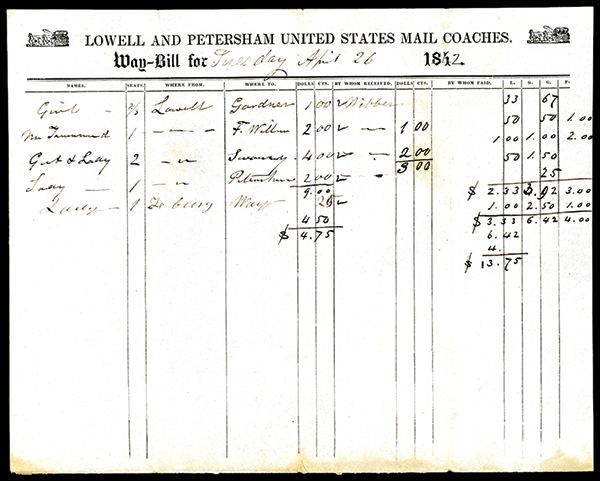 LOWELL AND PETERSHAM UNITED STATES MAIL COACHES.
Way-Bill for Tuesday April 26 1842
NAMES. SEATS. WHERE FROM. WHERE TO. DOLLS CTS. BY WHOM RECEIVED. DOLLS CTS. BY WHOM PAID. L. G. G. F
Girl - Lowell Gardner 1 00 Webber 33 67
50 50 1.00
Mr Townsend 1 — — — 2 00 — 1 00
1.00 1.00 2.00
Gt & Lady 2 — " — Swanzy 4.00 " 2 00 50 1.50
3 00 25
Lady — 1 — " — Petersham 2 00 "
9.00 $ 2.33 3.00
Lady — 1 25 1.00 2.50 1.00
4 50 $ 3.33 6.42 4.00
$ 4.75 6.42
4.
$ 13.75